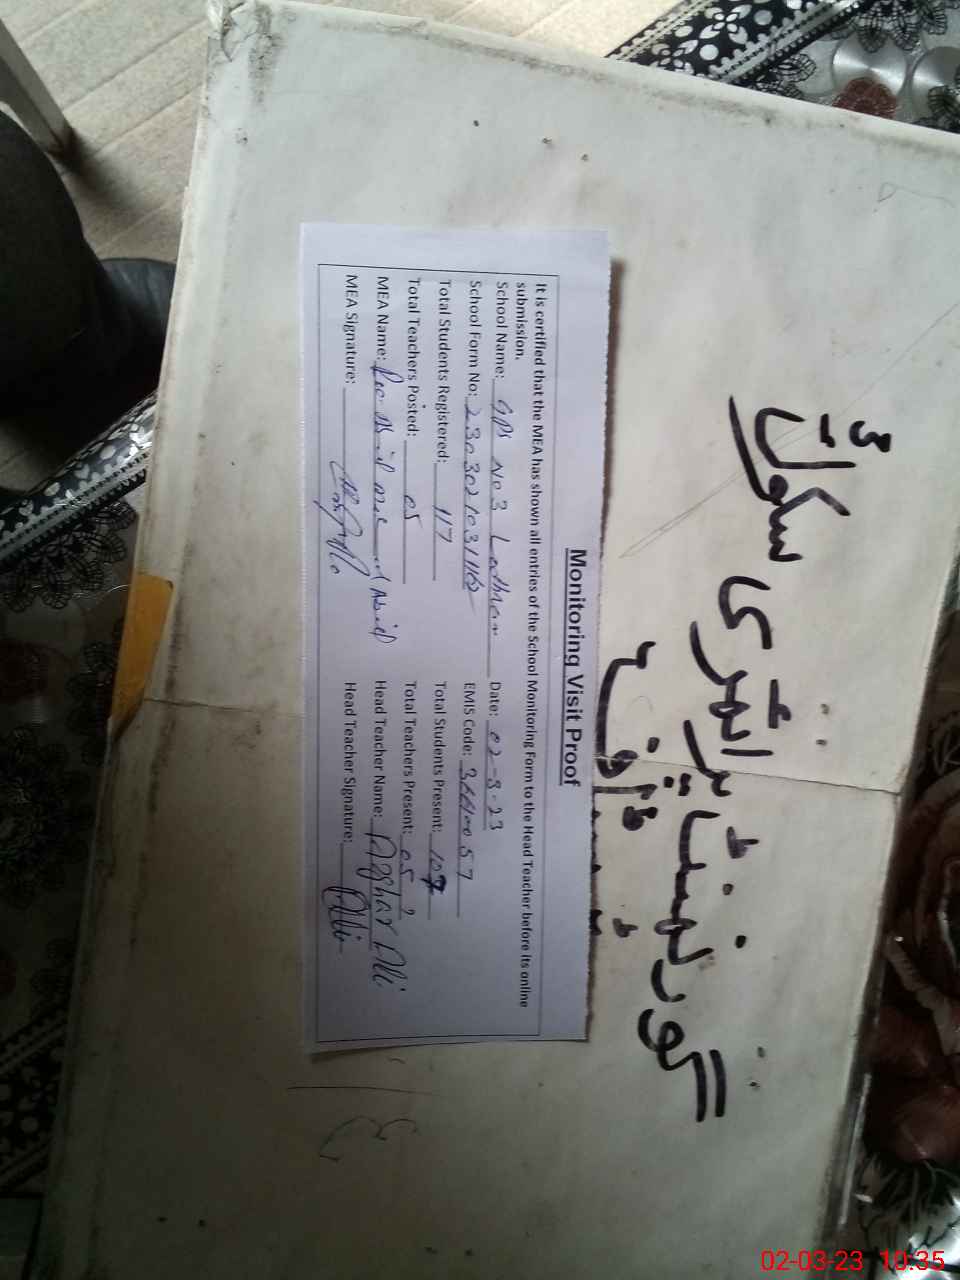 گورنمنٹ پرائمری سکول
Monitoring Visit Proof
It is certified that the MEA has shown all entries of the School Monitoring Form to the Head Teacher before its online
submission.
School Name: GPS No 3 Lodhran Date: 02-3-23
School Form No: EMIS Code:
Total Students Registered: 117 Total Students Present: 107
Total Teachers Posted: 05 Total Teachers Present: 05
MEA Name: Head Teacher Name: Asghar Ali
MEA Signature: Head Teacher Signature: Ali
02-03-23 10:35